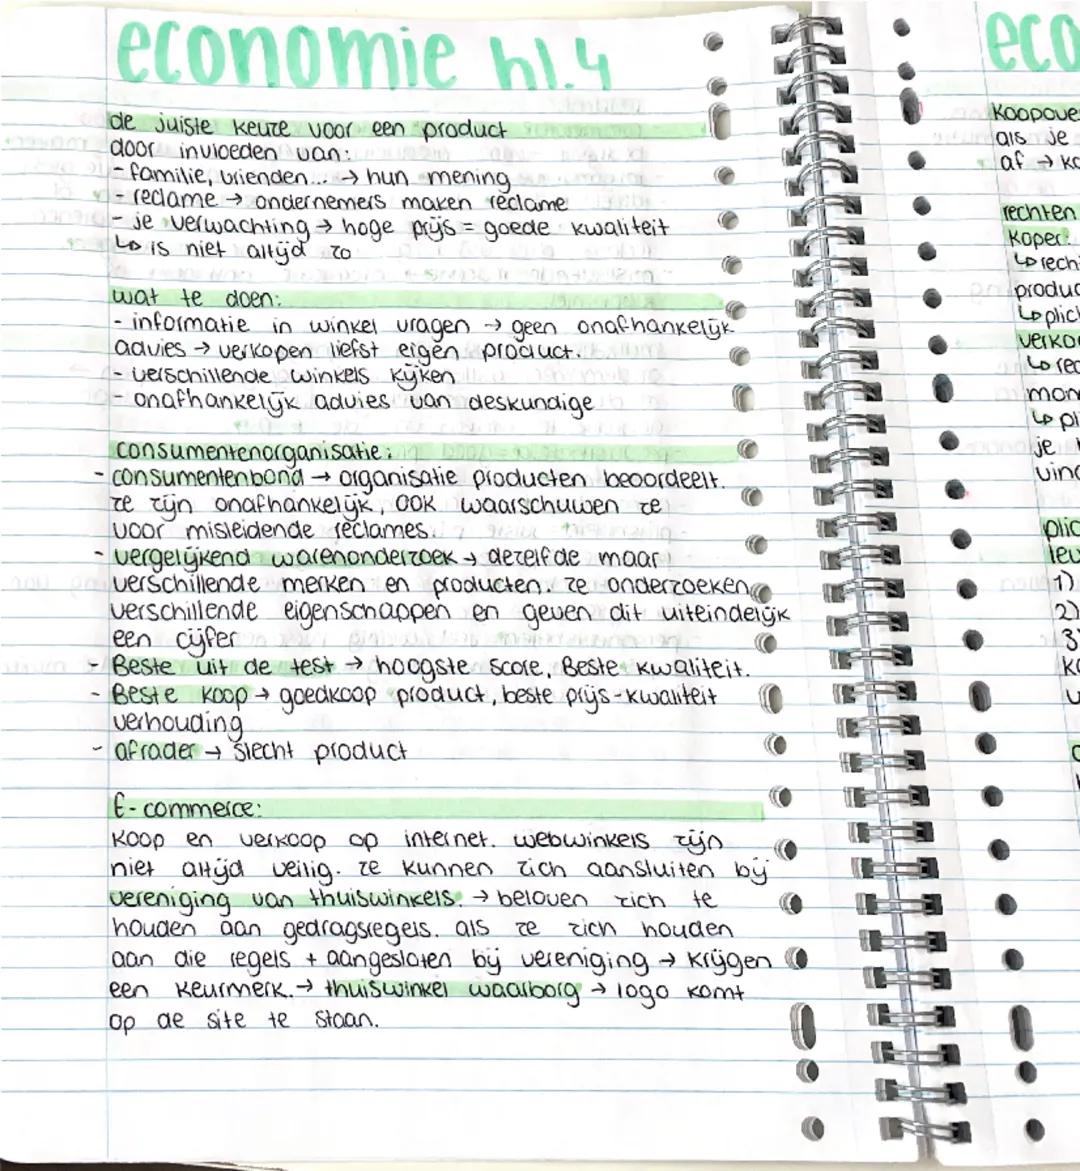 economie h1.4
de juiste keuze voor een product
door invloeden van:
- familie, vrienden... → hun mening
- reclame → ondernemers maken reclame
- je verwachting → hoge prijs = goede kwaliteit
↳ is niet altijd zo
wat te doen:
- informatie in winkel vragen → geen onafhankelijk
advies → verkopen liefst eigen product.
- verschillende winkels kijken
- onafhankelijk advies van deskundige
consumentenorganisatie:
- consumentenbond → organisatie producten beoordeelt.
ze zijn onafhankelijk, ook waarschuwen ze
voor misleidende reclames.
- vergelijkend warenonderzoek → dezelfde maar
verschillende merken en producten. ze onderzoeken
verschillende eigenschappen en geven dit uiteindelijk
een cijfer
- Beste uit de test → hoogste score, Beste kwaliteit.
- Beste koop → goedkoop product, beste prijs-kwaliteit
verhouding
- afrader → slecht product
E-commerce:
koop en verkoop op internet. webwinkels zijn
niet altijd veilig. ze kunnen zich aansluiten bij
vereniging van thuiswinkels. → beloven zich te
houden aan gedragsregels. als ze zich houden
aan die regels + aangesloten bij vereniging → krijgen
een keurmerk. → thuiswinkel waarborg → logo komt
op de site te staan.
eco
als je
af →
rechten
koper:
1)
2)
3)